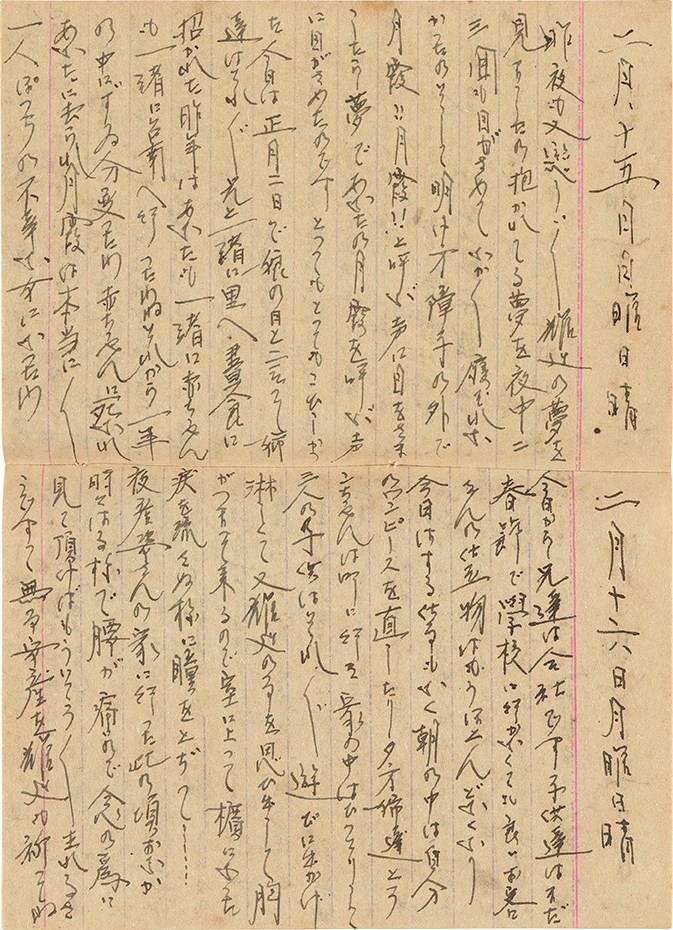 二月、十五日日曜日晴
昨夜も又恋しい〱雄逑の夢を
見ましたの抱かれてる夢を夜中二
三回も目がさめてなか〱寝ずれな
かったのそして明け方障子の外で
月霞!!月霞!!と呼ぶ声に目をさま
したら夢であなたの月霞を呼ぶ声
に目がさめたのです とっても
た今日は正月二日で娘の日と言って姉
達はそれ〲兄と一緒に里へ昼食に
招かれた昨年はあなたも一緒に赤ちゃん
も一緒に台南へ行ったわねそれから一年
の中にずゐ分変ったわ赤ちゃんに死なれ
あなたに去られ月霞は本当に〱
一人ぽっちの不幸な女になったわ
二月十六日月曜日晴
今日から兄達は会社です子供達はまだ
春節で学校に行かなくても良いお客
さんの仕立物はもうほとんどなくなり
今日はする仕事もなく朝の中は自分
のワンピースを直したり夕方姉達とう
ちゃんは町に行き家の中はひっそりして
三人の子供はそれ〲遊びに出かけ
淋しくて又雄逑の事を思ひ出して胸
がつまって来るので室に上って横になった
涙を流さぬ様に瞳をとぢて……
夜産婆さんの家に行った此の頃おなか
時々はる様で腰が痛いので念の為に
見て頂けばもういそろ〱生れるさ
うです無事安産を雄逑も祈ってね